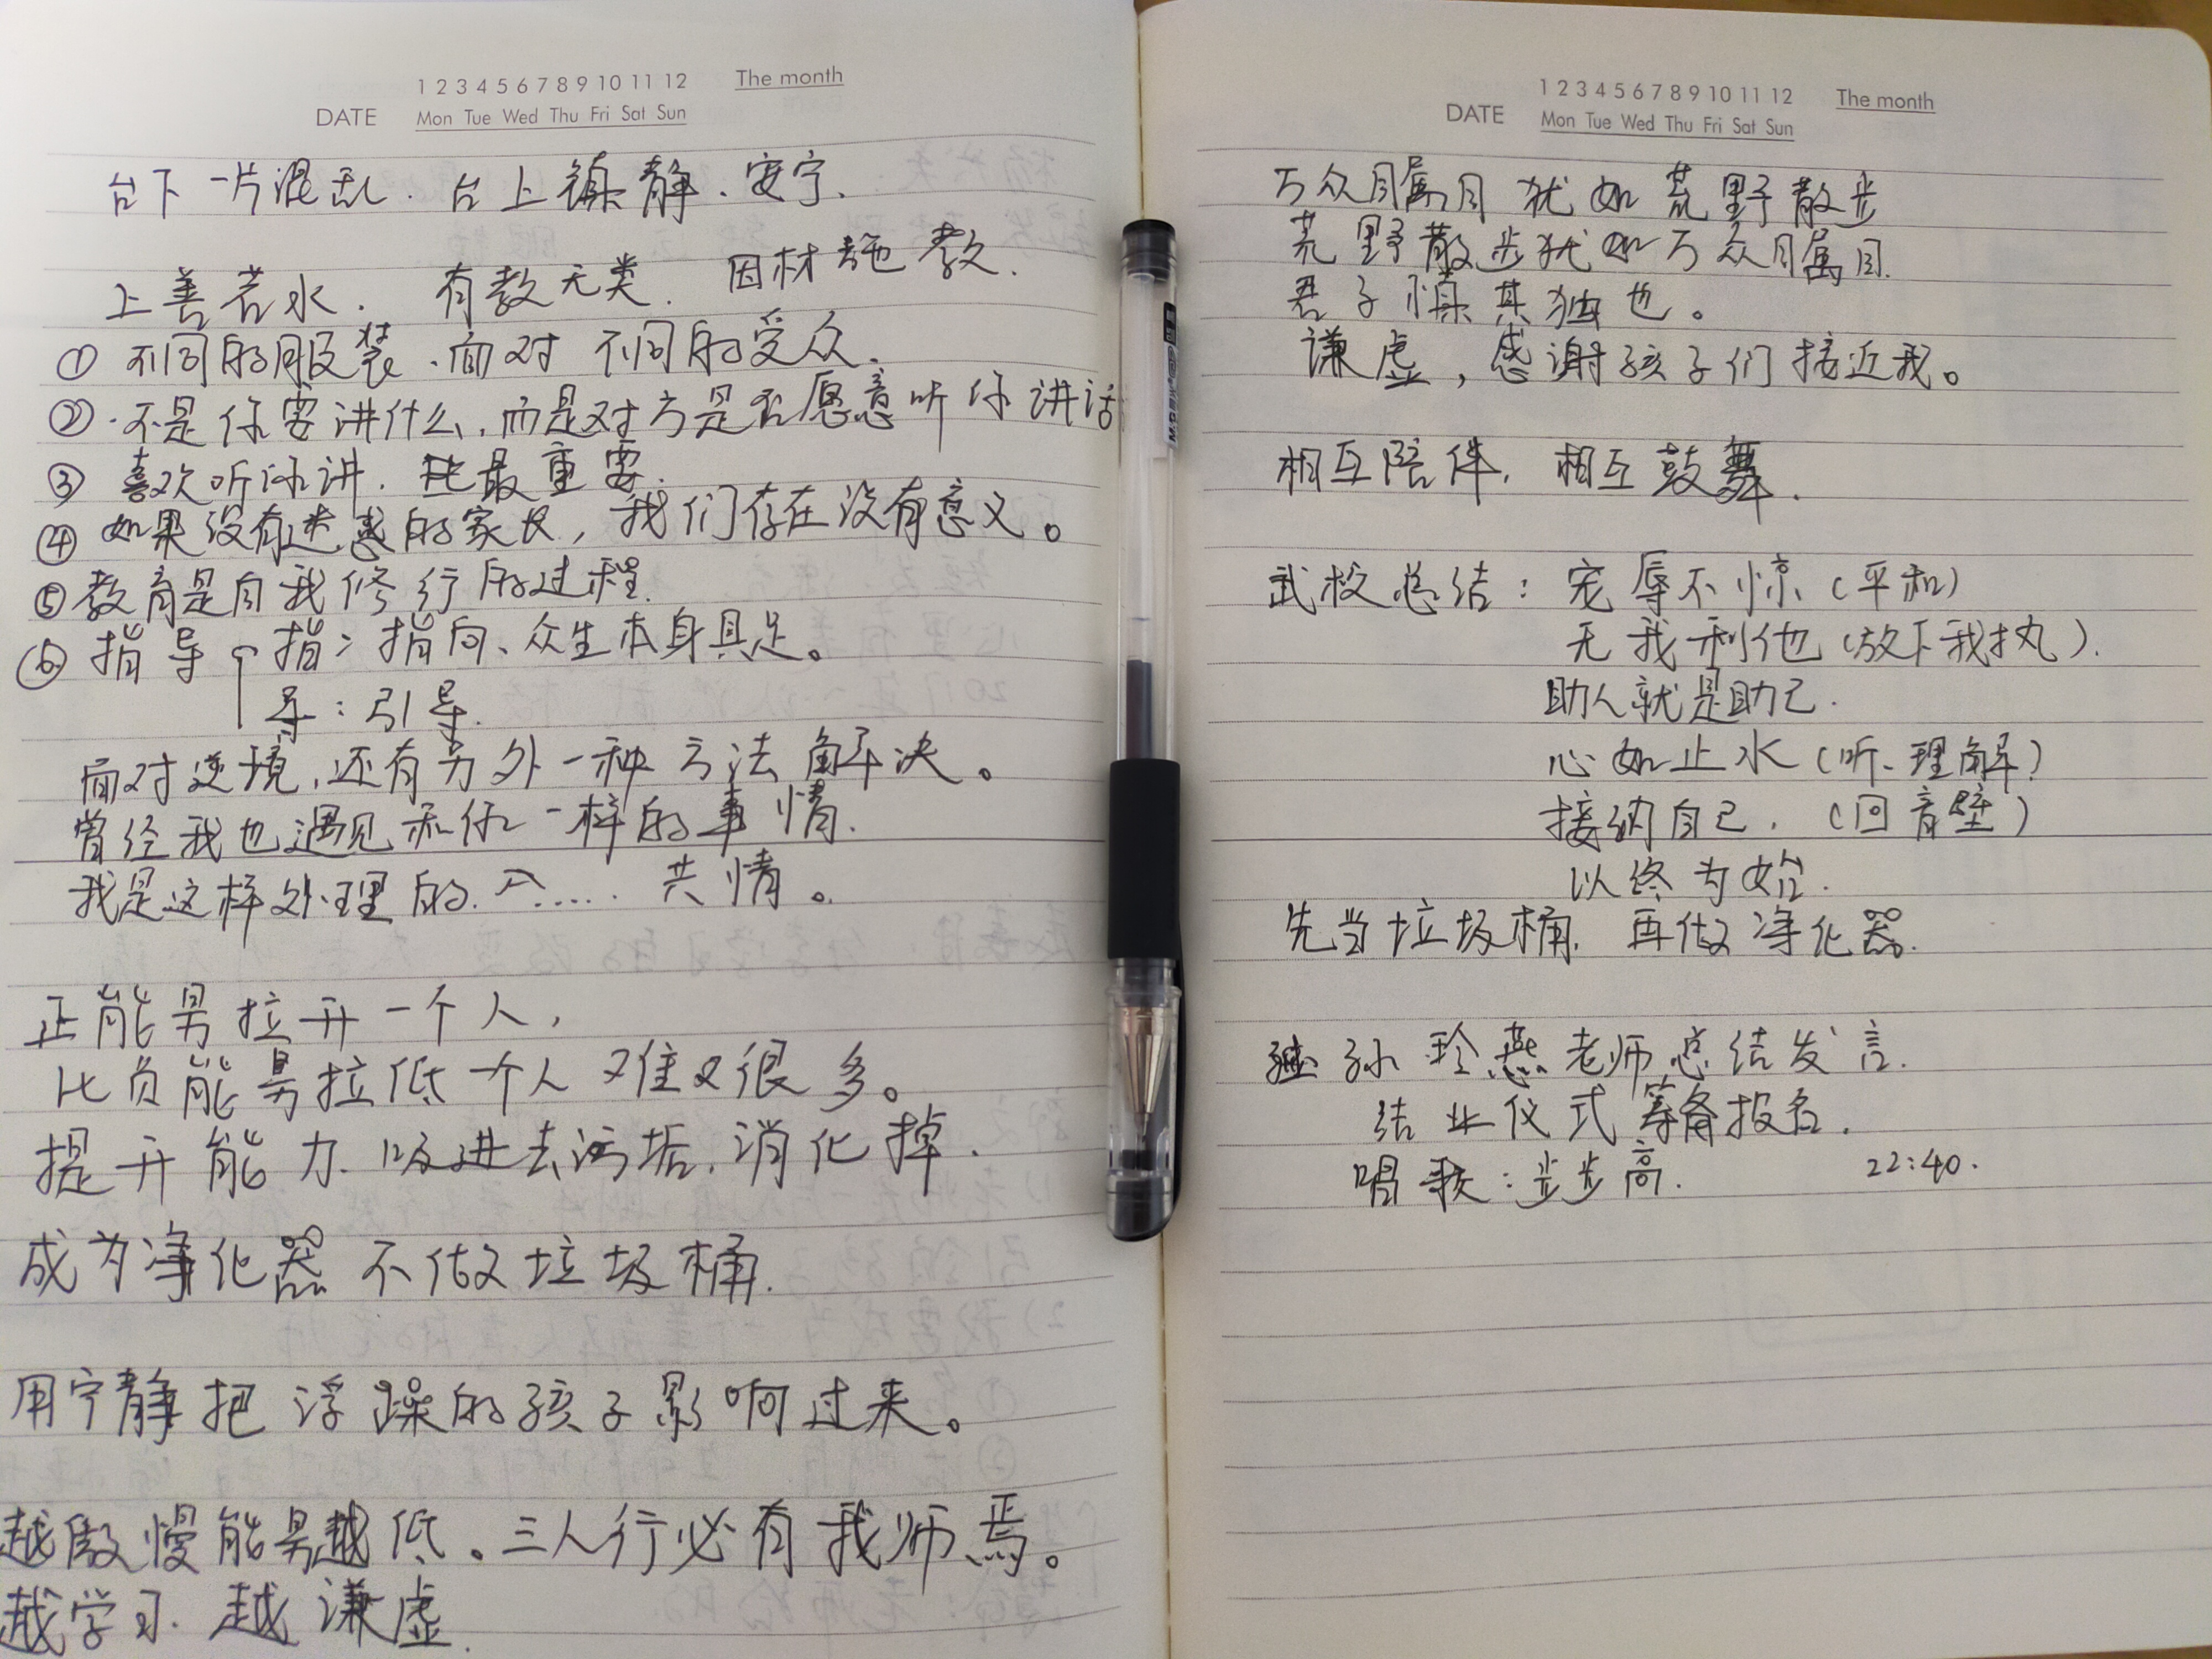 1 2 3 4 5 6 7 8 9 10 11 12 The month
DATE Mon Tue Wed Thu Fri Sat Sun
台下一片混乱. 台上镇静、安宁.
上善若水. 有教无类. 因材施教.
① 不同的服装、面对不同的受众.
②.不是你要讲什么,而是对方是否愿意听你讲话
③ 喜欢听你讲. 最重要.
④ 如果没有迷惑的家长,我们存在没有意义。
⑤教育是自我修行的过程.
⑥ 指导 指: 指向、众生本身具足。
导:引导.
面对逆境,还有另外一种方法解决。
曾经我也遇见和你一样的事情.
我是这样处理的. ..... 共情。
正能量拉升一个人,
比负能量拉低一个人难又很多。
提升能力. 吸进去污垢.消化掉.
成为净化器 不做垃圾桶.
用宁静把浮躁的孩子影响过来。
越傲慢能量越低。三人行必有我师焉。
越学习. 越谦虚.
1 2 3 4 5 6 7 8 9 10 11 12 The month
DATE Mon Tue Wed Thu Fri Sat Sun
万众瞩目犹如荒野散步
荒野散步犹如万众瞩目.
君子慎其独也。
谦虚,感谢孩子们接近我。
相互陪伴, 相互鼓舞.
武校总结: 宠辱不惊(平和)
无我利他(放下我执).
助人就是助己.
心如止水(听、理解)
接纳自己. (回音壁)
以终为始.
先当垃圾桶. 再做净化器.
孙玲燕老师总结发言.
结业仪式筹备报名.
唱歌:步步高. 22:40.